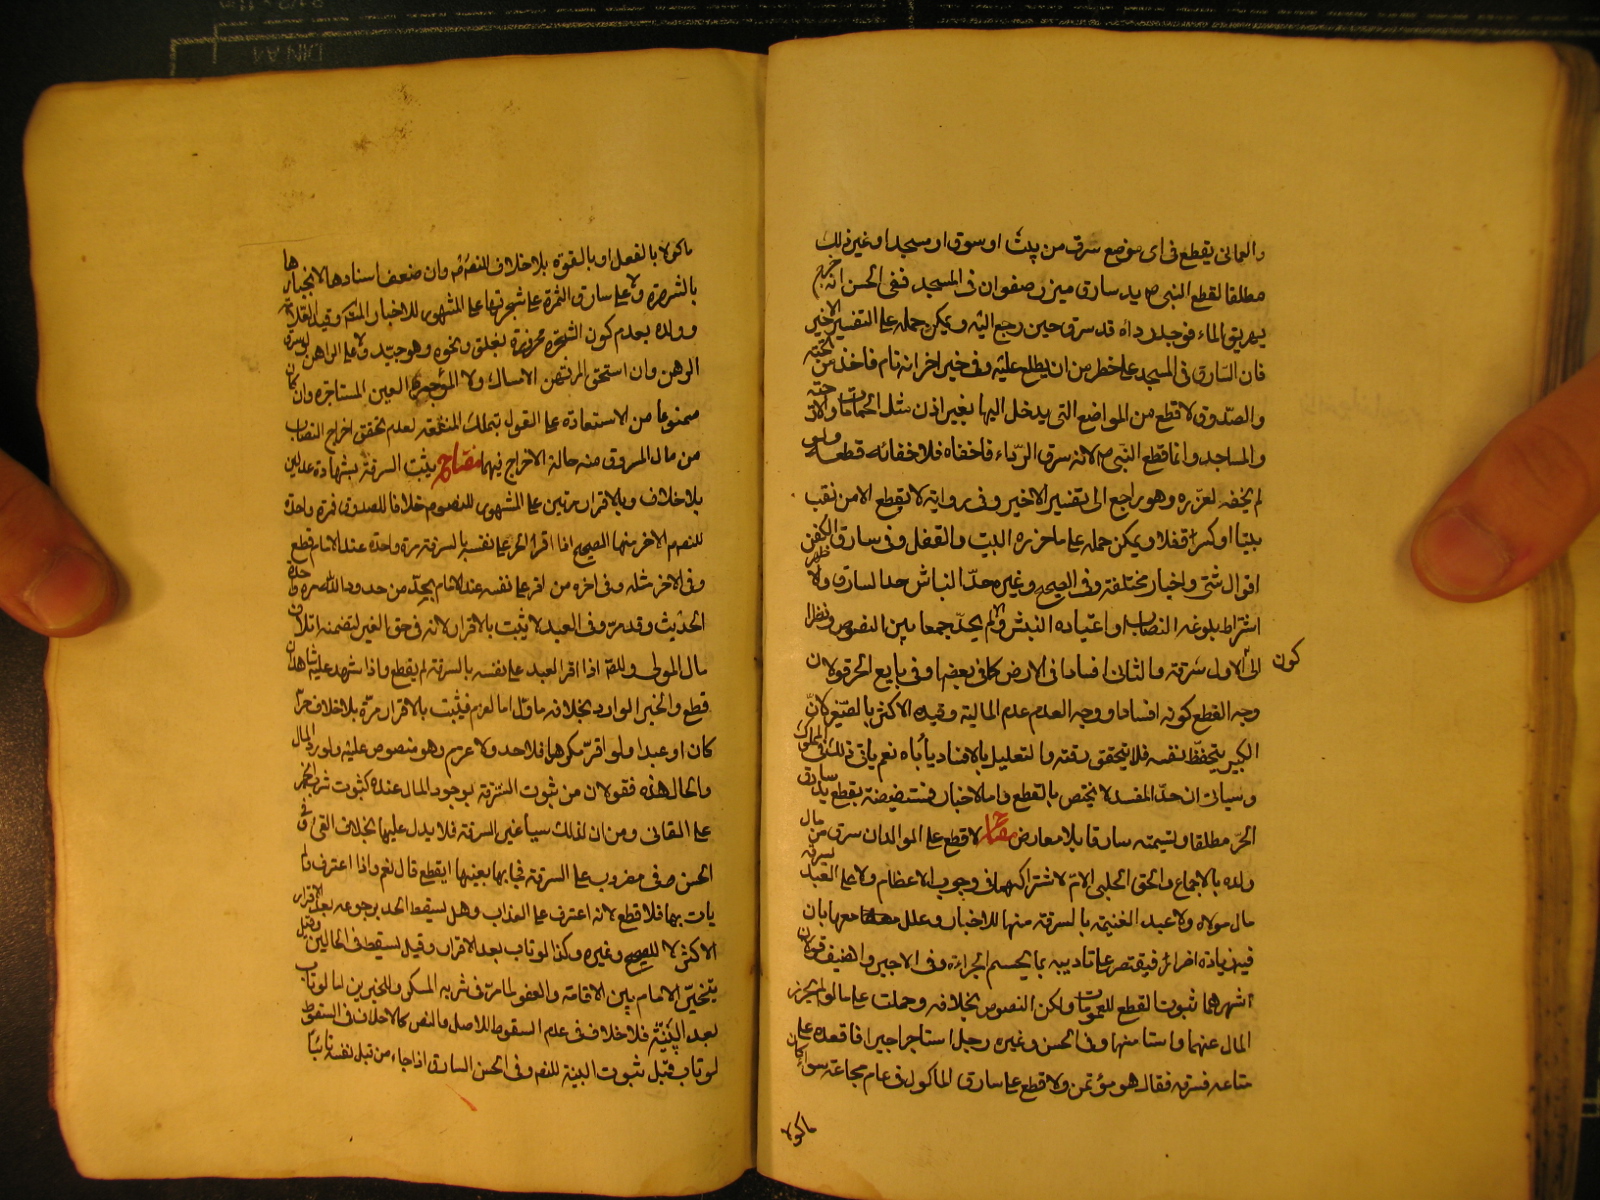 والعماني يقطع في اي موضع سرق من بيت او سوق او مسجد او غير ذلك
مطلقا لقطع النبي ص يد سارق ميزر صفوان في المسجد ففي الحسن انه خرج
يهريق الماء فوجد رداه قد سرق حين رجع اليه ويمكن حمله على التفسير الاخير
فان السارق في المسجد على خطر من ان يطلع عليه وفي خبر اخر انه نام فاخذ من تحته
والصدوق لا قطع من المواضع التي يدخل اليها بغير اذن مثل الحمامات والارحية
والمساجد وانما قطع النبي ص لانه سرق الرداء فاخفاه فلاخفائه قطعه ولو
لم يخفه لعزره وهو راجع الى تفسير الاخير وفي رواية لا يقطع الا من نقب
بيتا او كسر قفلا ويمكن حمله على ما حرزه البيت والقفل وفي سارق الكفن
اقوال شتى واخبار مختلفة وفي الصحيح وغيره حد النباش حد السارق ولا
اشتراط بلوغه النصاب واعتياده النبش والا لم يحد جمعا بين النصوص ونظرا
الى كون الاول سرقة والثاني افسادا في الارض كما في بعضها وفي بايع الحر قولان
وجه القطع كونه افسادا ووجه العدم عدم المالية وقيده الاكثر بالصغير لان
الكبير يتحفظ بنفسه فلا يتحقق سرقته والتعليل بالافساد ياباه نعم ياتي ذلك في المملوك
وسياتي ان حد المفسد لا يختص بالقطع واما الاخبار فمستفيضة بقطع يد سارق
الحر مطلقا وتسميته سارقا بلا معارض مفتاح لا قطع على الوالد ان سرق من مال
ولده بالاجماع والحق الحلبي الام لاشتراكهما في وجوب الاعظام ولا على العبد بسرقة
مال مولاه ولا عبد الغنيمة بالسرقة منها للاخبار وعلل معها بان
فيه زيادة اضرار فيقتصر على تاديبه بما يحسم الجرأة وفي الاجير والضيف قولان
اشهرهما ثبوت القطع للعمومات ولكن النصوص بخلافه وحملت على ما لو لم يحرز
المال عنهما واستامنها وفي الحسن وغيره رجل استاجر اجيرا فاقعده على
متاعه فسرقه فقال هو مؤتمن ولا قطع على سارق الماكول في عام مجاعة سواء كان
ماكولا
ماكولا بالفعل او بالقوة بلا خلاف للنصوص وان ضعف اسنادها لانجبارها
بالشهرة ولا على سارق الثمرة على شجرتها على المشهور للاخبار وقيده العلامة
وولده بعدم كون الشجرة محرزة بغلق ونحوه وهو جيد ولا على الراهن لو سرق
الرهن وان استحق المرتهن الامساك ولا الموجر العين المستاجرة وان كان
ممنوعا من الاستعادة على القول بتملك المنفعة لعدم تحقق اخراج النصاب
من مال المسروق منه حالة الاخراج فيهما مفتاح يثبت السرقة بشهادة عدلين
بلا خلاف وبالاقرار مرتين على المشهور للنصوص خلافا للصدوق فمرة واحدة
للنصوص الاخر منها الصحيح اذا اقر الحر على نفسه بالسرقة مرة واحدة عند الامام قطع
وفي الاخر مثله وفي اخره من اقر على نفسه عند الامام بحد من حدود الله مرة واحدة
الحديث وقد مر وفي العبد لا يثبت بالاقرار لانه في حق الغير لتضمنه اتلاف
مال المولى وللصحيح اذا اقر العبد على نفسه بالسرقة لم يقطع واذا شهد عليه شاهدان
قطع والخبر الوارد بخلافه ماول اما الغرم فيثبت بالاقرار مرة بلا خلاف حرا
كان او عبدا ولو اقر مكرها فلا حد ولا غرم وهو منصوص عليه ولو رد المال
والحال هذه فقولان من ثبوت السرقة بوجود المال عنده كثبوت شرب الخمر
على القائي ومن ان لذلك سببا غير السرقة فلا يدل عليها بخلاف القئ وفي
الحسن في مضروب على السرقة فجا بها بعينها ايقطع قال نعم واذا اعترف ولم
يات بها فلا قطع لانه اعترف على العذاب وهل يسقط الحد برجوعه بعد الاقرار
الاكثر لا للصحيح وغيره وكذا لو تاب بعد الاقرار وقيل يسقط في الحالين وقيل
يتخير الامام بين الاقامة والعفو لما مر في شربه المسكر وللخبرين اما لو تاب
بعد البينة فلا خلاف في عدم السقوط للاصل والنص كما لا خلاف في السقوط
لو تاب قبل ثبوت البينة للنص وفي الحسن السارق اذا جاء من قبل نفسه تائبا